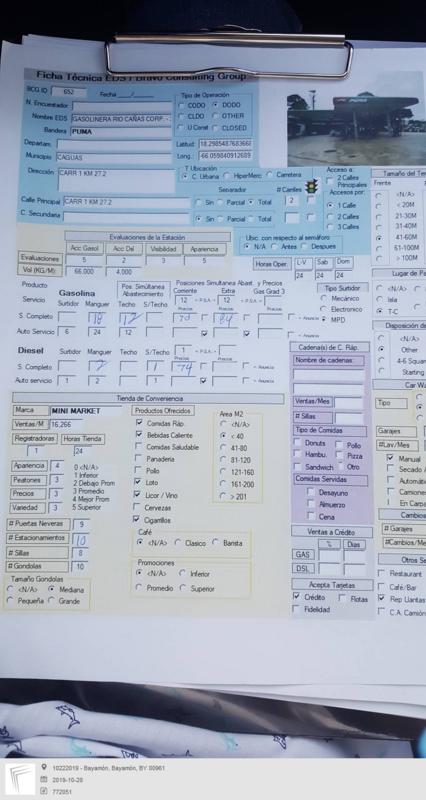 Ficha Técnica EDS / Bravo Consulting Group
BCG.ID 652 Fecha __/__/__
N. Encuestador
Nombre EDS GASOLINERA RIO CAÑAS CORP.
Bandera PUMA
Tipo de Operación
CODO DODO
CLDO OTHER
U Const CLOSED
Departam.
Municipio CAGUAS
Latitud 18.2985487683668
Long.: -66.059840912689
Dirección CARR 1 KM 27.2
T Ubicación
C. Urbana HiperMerc Carretera
Separador # Carriles
Calle Principal CARR 1 KM 27.2 Sin Parcial Total 2
C. Secundaria Sin Parcial Total
Acceso a:
2 Calles
Principales
Accesos por:
1 Calle
2 Calles
3 Calles
Tamaño del Ter
Frente
<N/A>
< 20M
21-30M
31-40M
41-60M
61-100M
> 100M
Evaluaciones de la Estación
Acc Gasol Acc Dsl Visibilidad Apariencia
Evaluaciones 5 2 3 5
Vol (KG/M): 66,000 4,000
Ubic. con respecto al semáforo
N/A Antes Despues
Horas Oper. L-V Sab Dom
24 24 24
Lugar de Pa
<N/A>
Isla
T-C
Producto Gasolina
Servicio Surtidor Manguer Techo
Pos. Simultanea
Abastecimiento
Techo S/Techo
Posiciones Simultanea Abast. y Precios
Corriente Extra Gas Grad 3
12 12
Precios
S. Completo 18 12 70 84
Auto Servicio 6 24 12
Tipo Surtidor
Mecánico
Electronico
MPD
Disposición de
<N/A>
Other
4-6 Square
Starting
Diesel Surtidor Manguer Techo S/Techo 1
Precios
S. Completo 2 1 74
Auto servicio 1 2 1
Cadena(s) de C. Ráp.
Nombre de cadenas:
Ventas/Mes
# Sillas
Tipo de Comidas
Donuts Pollo
Hambu. Pizza
Sandwich Otro
Comidas Servidas
Desayuno
Almuerzo
Cena
Ventas a Crédito
% Dias
GAS
DSL
Acepta Tarjetas
Crédito Flotas
Fidelidad
Car Wa
Tipo
Garajes
#Lav/Mes
Manual
Secado
Automáti
Camione
En Carpa
Cambios
# Garajes
#Cambios/Me
Otros Se
Restaurant
Café/Bar
Rep Llantas
C.A. Camión
Tienda de Conveniencia
Marca MINI MARKET
Ventas/M 16,266
Registradoras Horas Tienda
1 24
Apariencia 4
Peatones 3
Precios 3
Variedad 3
0 <N/A>
1 Inferior
2 Debajo Prom
3 Promedio
4 Mejor Prom
5 Superior
# Puertas Neveras 9
# Estacionamientos 10
# Sillas 8
# Gondolas 10
Tamaño Gondolas
<N/A> Mediana
Pequeña Grande
Productos Ofrecidos
Comidas Ráp.
Bebidas Caliente
Comidas Saludable
Panaderia
Pollo
Loto
Licor / Vino
Cervezas
Cigarrillos
Area M2
<N/A>
< 40
41-80
81-120
121-160
161-200
> 201
Café
<N/A> Clasico Barista
Promociones
<N/A> Inferior
Promedio Superior
10222019 - Bayamón, Bayamón, BY 00961
2019-10-28
772051